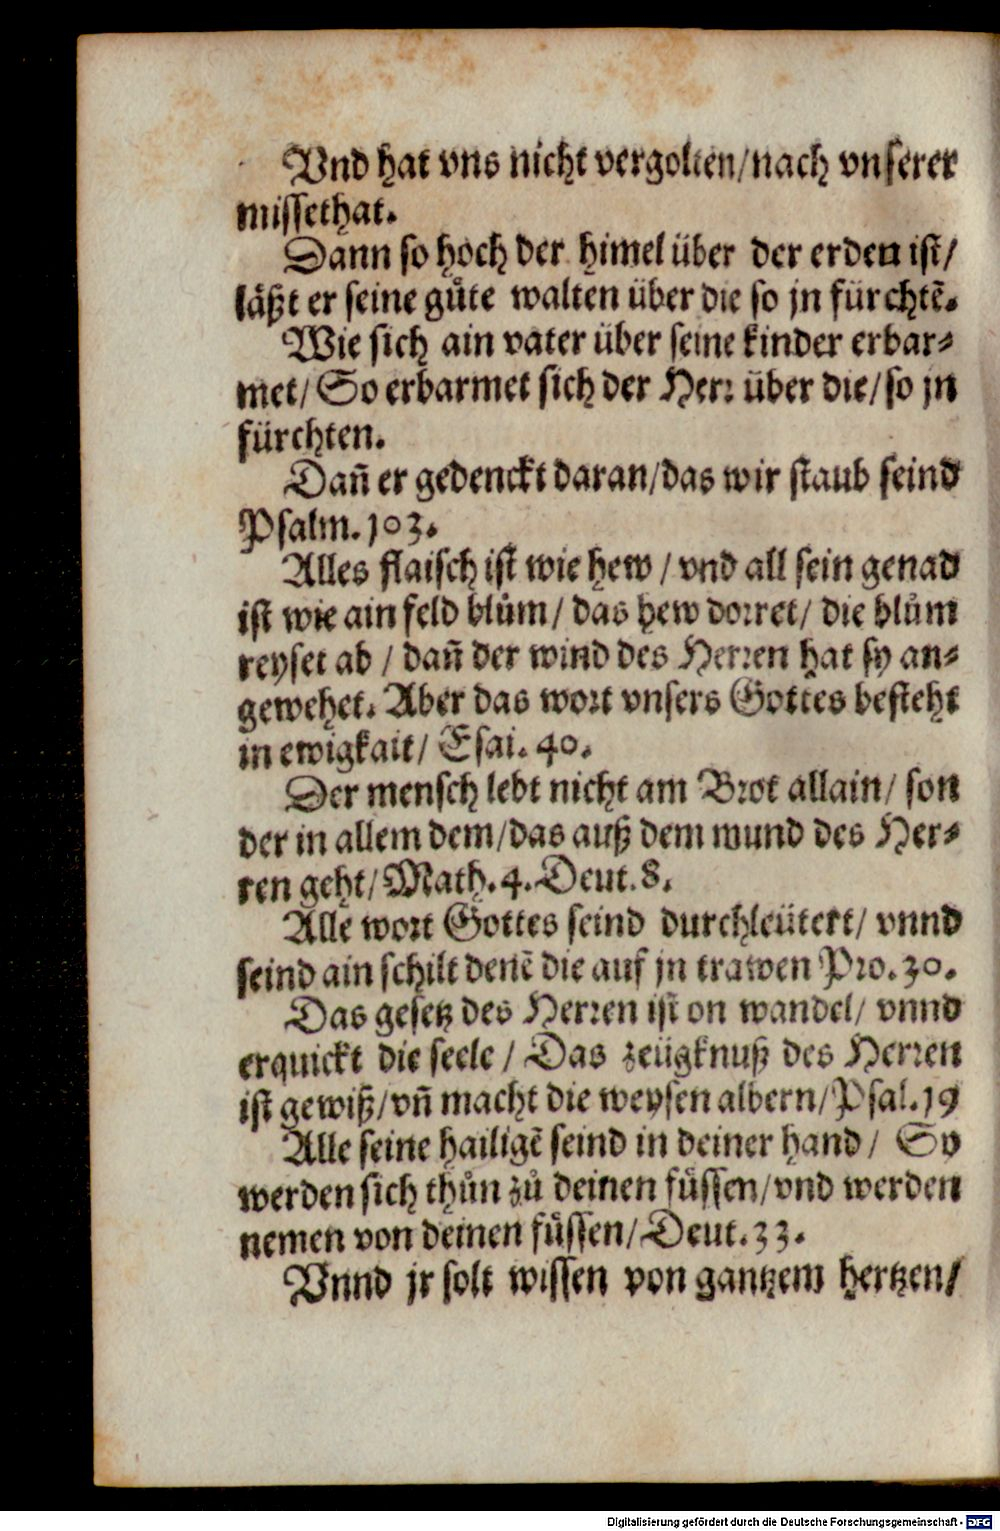 Vnd hat vns nicht vergolten/nach vnserer
missethat.
Dann so hoch der himel über der erden ist/
läßt er seine guͤte walten über die so jn fürchtẽ.
Wie sich ain vater über seine kinder erbar⸗
met/ So erbarmet sich der Herr über die/so jn
fürchten.
Dañ er gedenckt daran/das wir staub seind
Psalm. 103.
Alles flaisch ist wie hew / vnd all sein genad
ist wie ain feld bluͦm/ das hew dorret/ die bluͦm
reyset ab / dañ der wind des Herren hat sy an⸗
gewehet. Aber das wort vnsers Gottes besteht
in ewigkait/ Esai. 40.
Der mensch lebt nicht am Brot allain/ son
der in allem dem/das auß dem mund des Her⸗
ren geht/Math.4.Deut.8.
Alle wort Gottes seind durchleütert/ vnnd
seind ain schilt denẽ die auf jn trawen Pro.30.
Das gesetz des Herren ist on wandel/ vnnd
erquickt die seele / Das zeügknuß des Herren
ist gewiß/vñ macht die weysen albern/Psal.19
Alle seine hailigẽ seind in deiner hand/ Sy
werden sich thuͦn zuͦ deinen fuͤssen/vnd werden
nemen von deinen fuͤssen/Deut.33.
Vnnd jr solt wissen von gantzem hertzen/
Digitalisierung gefördert durch die Deutsche Forschungsgemeinschaft - DFG